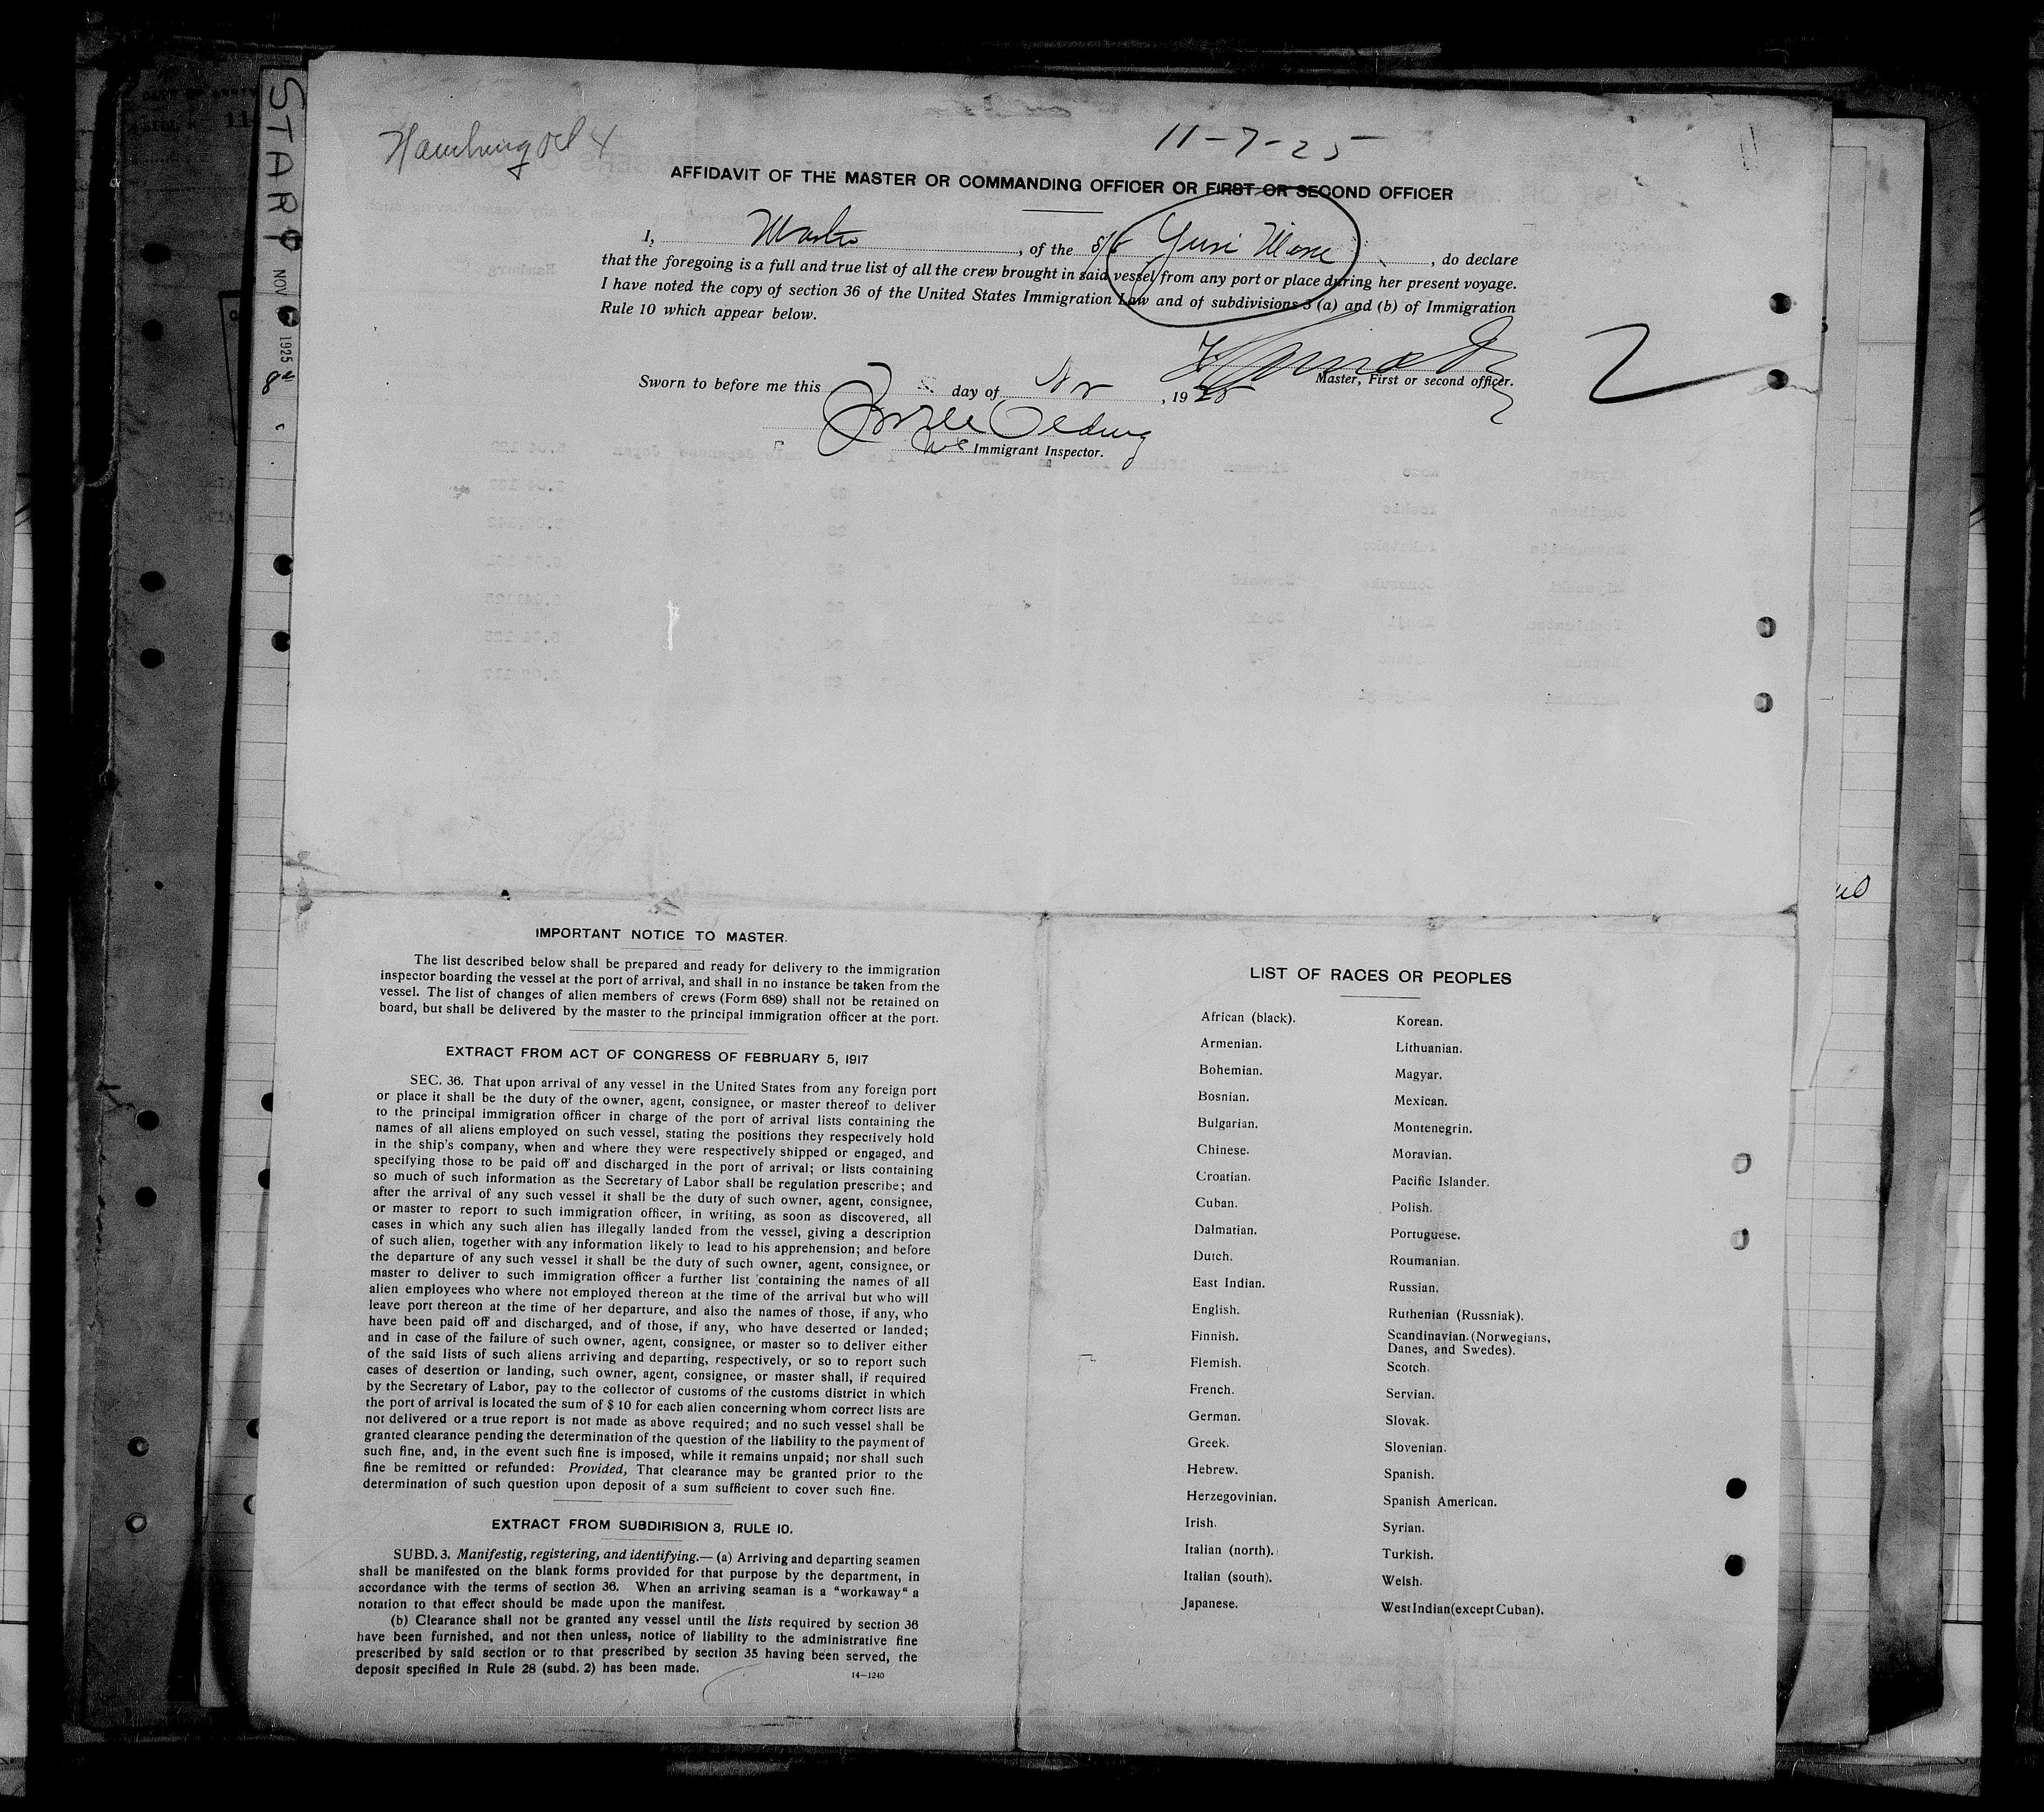 START
NOV 1925
Hamburg Oct 4
11-7-25
AFFIDAVIT OF THE MASTER OR COMMANDING OFFICER OR FIRST OR SECOND OFFICER
I, Master, of the S/S Yuri Maru, do declare
that the foregoing is a full and true list of all the crew brought in said vessel from any port or place during her present voyage.
I have noted the copy of section 36 of the United States Immigration Law and of subdivisions 3 (a) and (b) of Immigration
Rule 10 which appear below.
2
Master, First or second officer.
Sworn to before me this day of Nov, 1925
Immigrant Inspector.
IMPORTANT NOTICE TO MASTER.
The list described below shall be prepared and ready for delivery to the immigration
inspector boarding the vessel at the port of arrival, and shall in no instance be taken from the
vessel. The list of changes of alien members of crews (Form 689) shall not be retained on
board, but shall be delivered by the master to the principal immigration officer at the port.
EXTRACT FROM ACT OF CONGRESS OF FEBRUARY 5, 1917
SEC. 36. That upon arrival of any vessel in the United States from any foreign port
or place it shall be the duty of the owner, agent, consignee, or master thereof to deliver
to the principal immigration officer in charge of the port of arrival lists containing the
names of all aliens employed on such vessel, stating the positions they respectively hold
in the ship's company, when and where they were respectively shipped or engaged, and
specifying those to be paid off and discharged in the port of arrival; or lists containing
so much of such information as the Secretary of Labor shall be regulation prescribe; and
after the arrival of any such vessel it shall be the duty of such owner, agent, consignee,
or master to report to such immigration officer, in writing, as soon as discovered, all
cases in which any such alien has illegally landed from the vessel, giving a description
of such alien, together with any information likely to lead to his apprehension; and before
the departure of any such vessel it shall be the duty of such owner, agent, consignee, or
master to deliver to such immigration officer a further list containing the names of all
alien employees who where not employed thereon at the time of the arrival but who will
leave port thereon at the time of her departure, and also the names of those, if any, who
have been paid off and discharged, and of those, if any, who have deserted or landed;
and in case of the failure of such owner, agent, consignee, or master so to deliver either
of the said lists of such aliens arriving and departing, respectively, or so to report such
cases of desertion or landing, such owner, agent, consignee, or master shall, if required
by the Secretary of Labor, pay to the collector of customs of the customs district in which
the port of arrival is located the sum of $ 10 for each alien concerning whom correct lists are
not delivered or a true report is not made as above required; and no such vessel shall be
granted clearance pending the determination of the question of the liability to the payment of
such fine, and, in the event such fine is imposed, while it remains unpaid; nor shall such
fine be remitted or refunded: Provided, That clearance may be granted prior to the
determination of such question upon deposit of a sum sufficient to cover such fine.
EXTRACT FROM SUBDIRISION 3, RULE 10.
SUBD. 3. Manifestig, registering, and identifying.— (a) Arriving and departing seamen
shall be manifested on the blank forms provided for that purpose by the department, in
accordance with the terms of section 36. When an arriving seaman is a "workaway" a
notation to that effect should be made upon the manifest.
(b) Clearance shall not be granted any vessel until the lists required by section 36
have been furnished, and not then unless, notice of liability to the administrative fine
prescribed by said section or to that prescribed by section 35 having been served, the
deposit specified in Rule 28 (subd. 2) has been made.
14—1240
LIST OF RACES OR PEOPLES
African (black).
Armenian.
Bohemian.
Bosnian.
Bulgarian.
Chinese.
Croatian.
Cuban.
Dalmatian.
Dutch.
East Indian.
English.
Finnish.
Flemish.
French.
German.
Greek.
Hebrew.
Herzegovinian.
Irish.
Italian (north).
Italian (south).
Japanese.
Korean.
Lithuanian.
Magyar.
Mexican.
Montenegrin.
Moravian.
Pacific Islander.
Polish.
Portuguese.
Roumanian.
Russian.
Ruthenian (Russniak).
Scandinavian. (Norwegians,
Danes, and Swedes).
Scotch.
Servian.
Slovak.
Slovenian.
Spanish.
Spanish American.
Syrian.
Turkish.
Welsh.
West Indian (except Cuban).